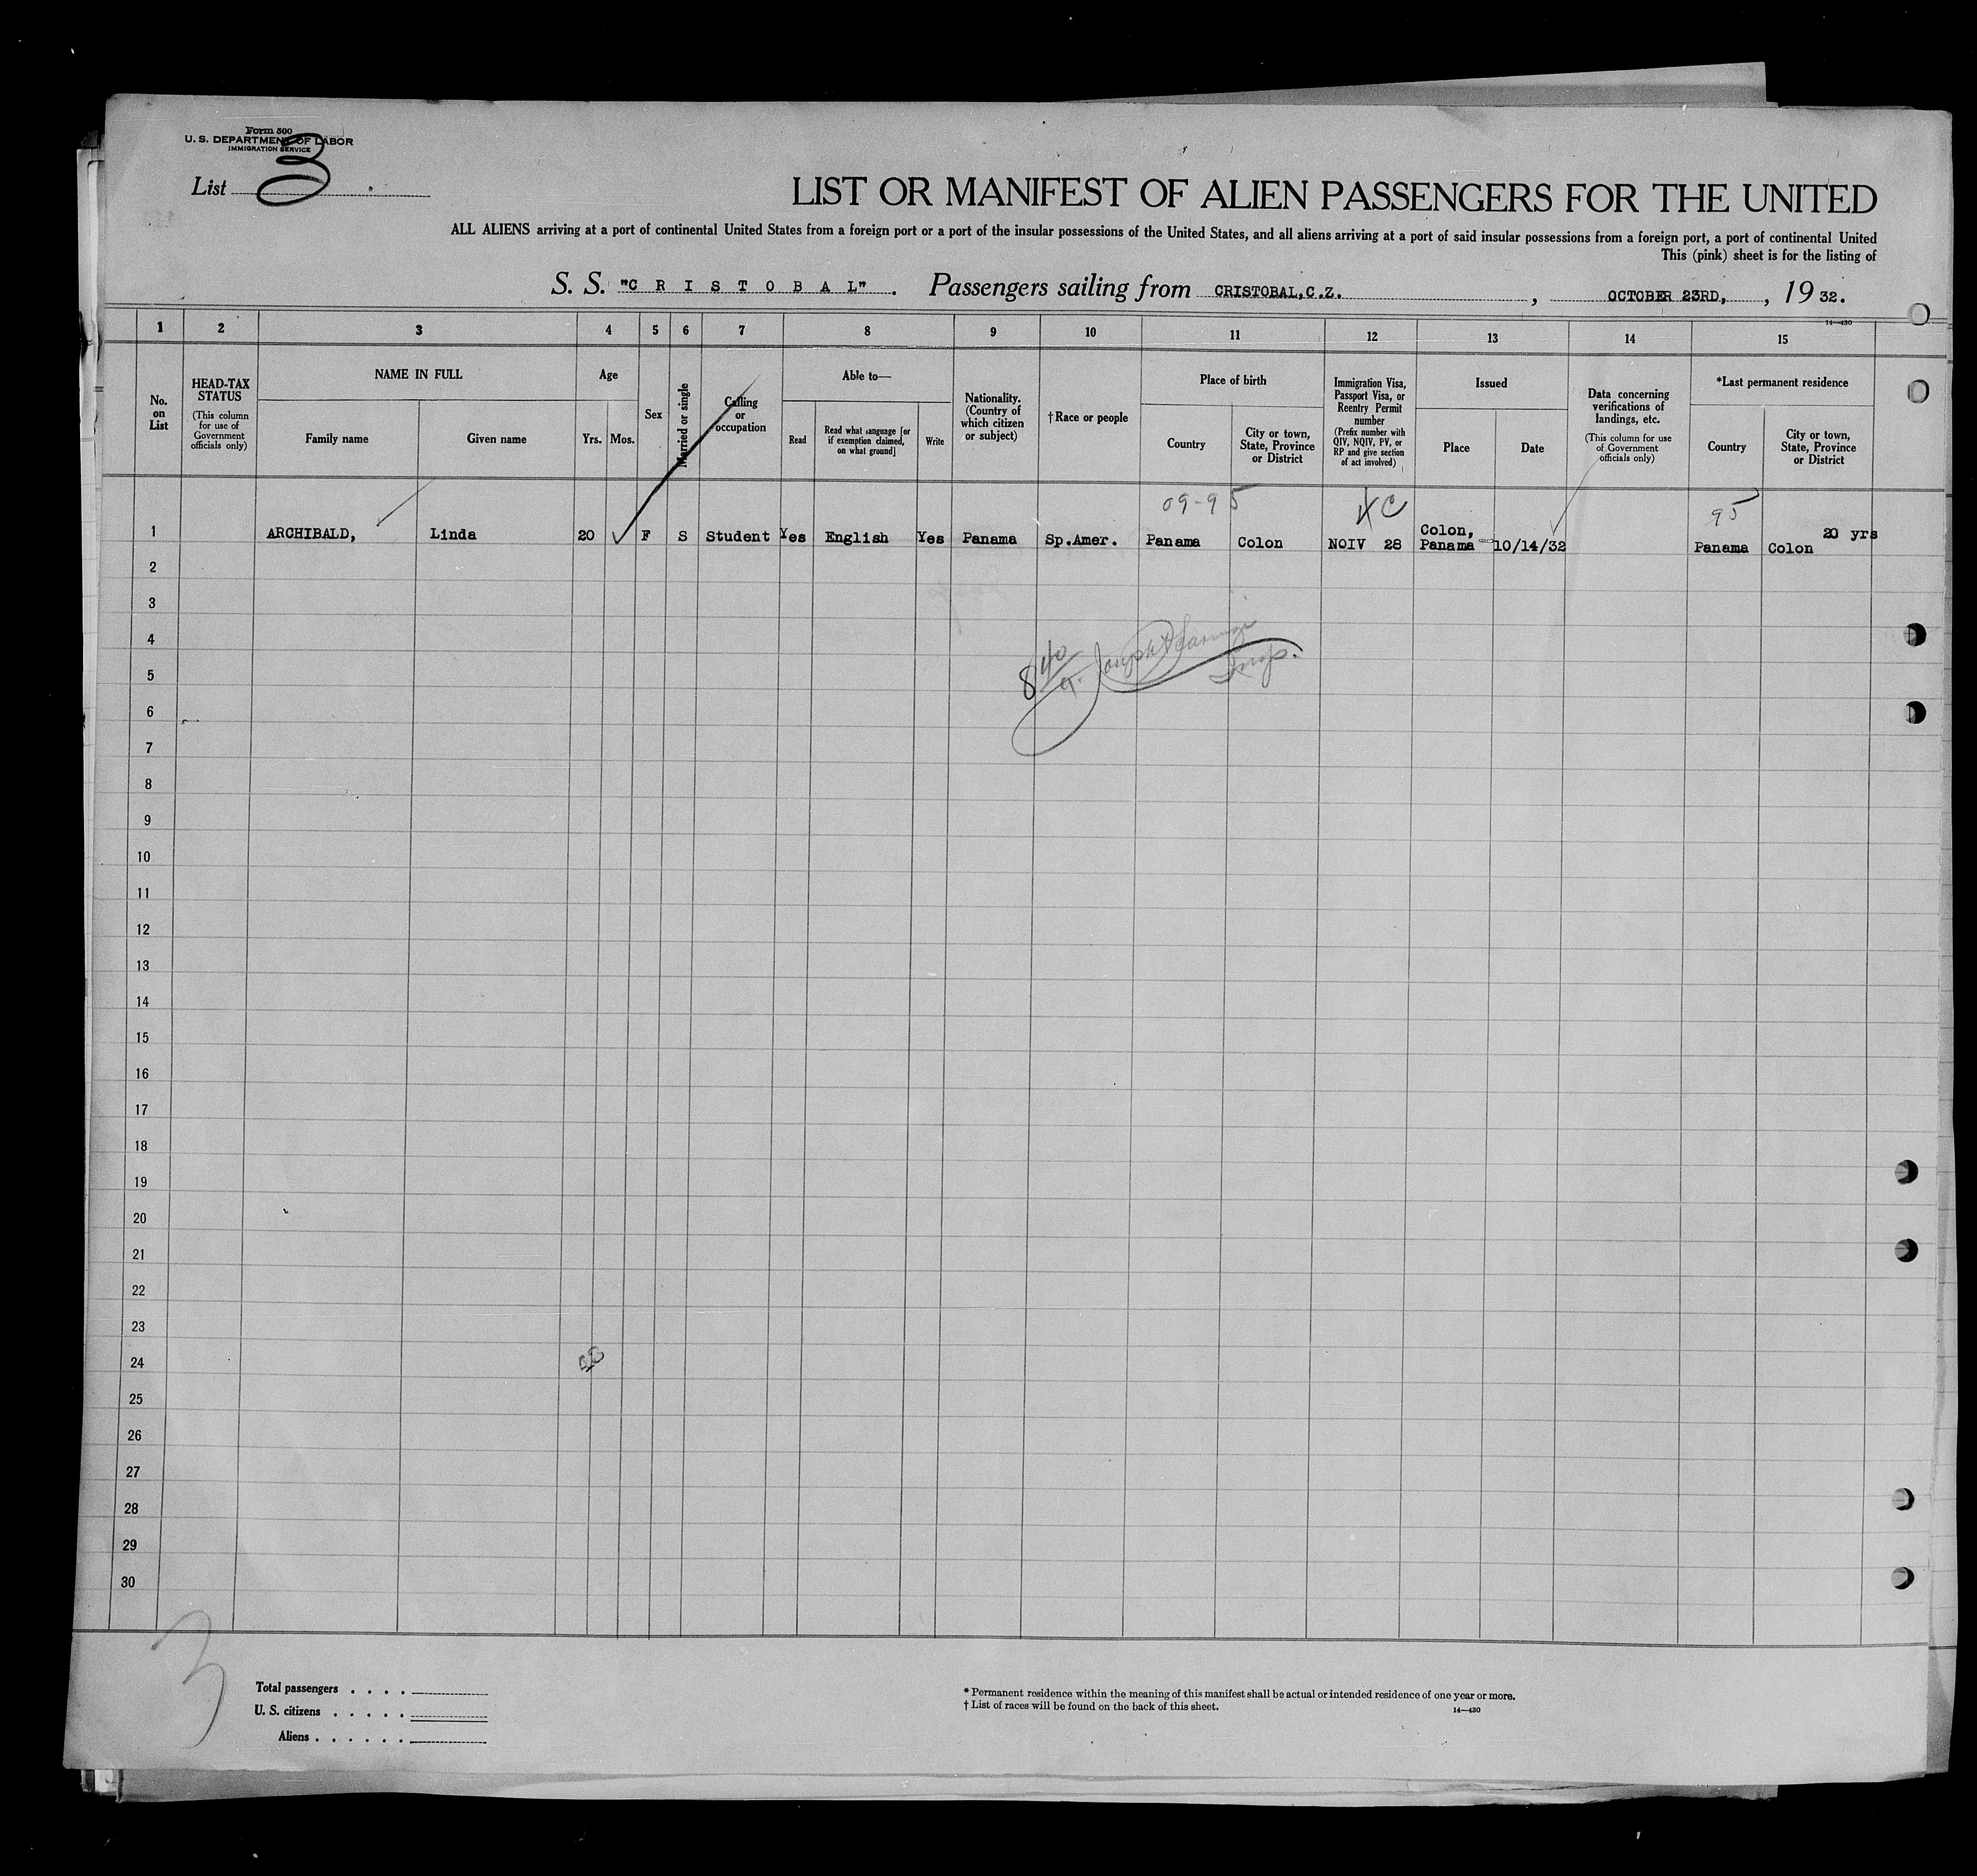 Form 500
U. S. DEPARTMENT OF LABOR
IMMIGRATION SERVICE
List 3
LIST OR MANIFEST OF ALIEN PASSENGERS FOR THE UNITED
ALL ALIENS arriving at a port of continental United States from a foreign port or a port of the insular possessions of the United States, and all aliens arriving at a port of said insular possessions from a foreign port, a port of continental United
This (pink) sheet is for the listing of
S. S. "C R I S T O B A L". Passengers sailing from CRISTOBAL,C.Z. , OCTOBER 23RD, , 19 32.
14—430
1 2 3 4 5 6 7 8 9 10 11 12 13 14 15
No. on List
HEAD-TAX STATUS
(This column for use of Government officials only)
NAME IN FULL
Family name
Given name
Age
Yrs.
Mos.
Sex
Married or single
Calling or occupation
Able to—
Read
Read what language [or if exemption claimed, on what ground]
Write
Nationality. (Country of which citizen or subject)
†Race or people
Place of birth
Country
City or town, State, Province or District
Immigration Visa, Passport Visa, or Reentry Permit number
(Prefix number with QIV, NQIV, PV, or RP and give section of act involved)
Issued
Place
Date
Data concerning verifications of landings, etc.
(This column for use of Government officials only)
*Last permanent residence
Country
City or town, State, Province or District
09-95
95
1 ARCHIBALD, Linda 20 F S Student Yes English Yes Panama Sp.Amer. Panama Colon NQIV 28 Colon, Panama 10/14/32 Panama Colon 20 yrs
2
3
4
5
Insp.
6
7
8
9
10
11
12
13
14
15
16
17
18
19
20
21
22
23
24
25
26
27
28
29
30
3
Total passengers . . . .
U. S. citizens . . . . .
Aliens . . . . . .
* Permanent residence within the meaning of this manifest shall be actual or intended residence of one year or more.
† List of races will be found on the back of this sheet.
14—430